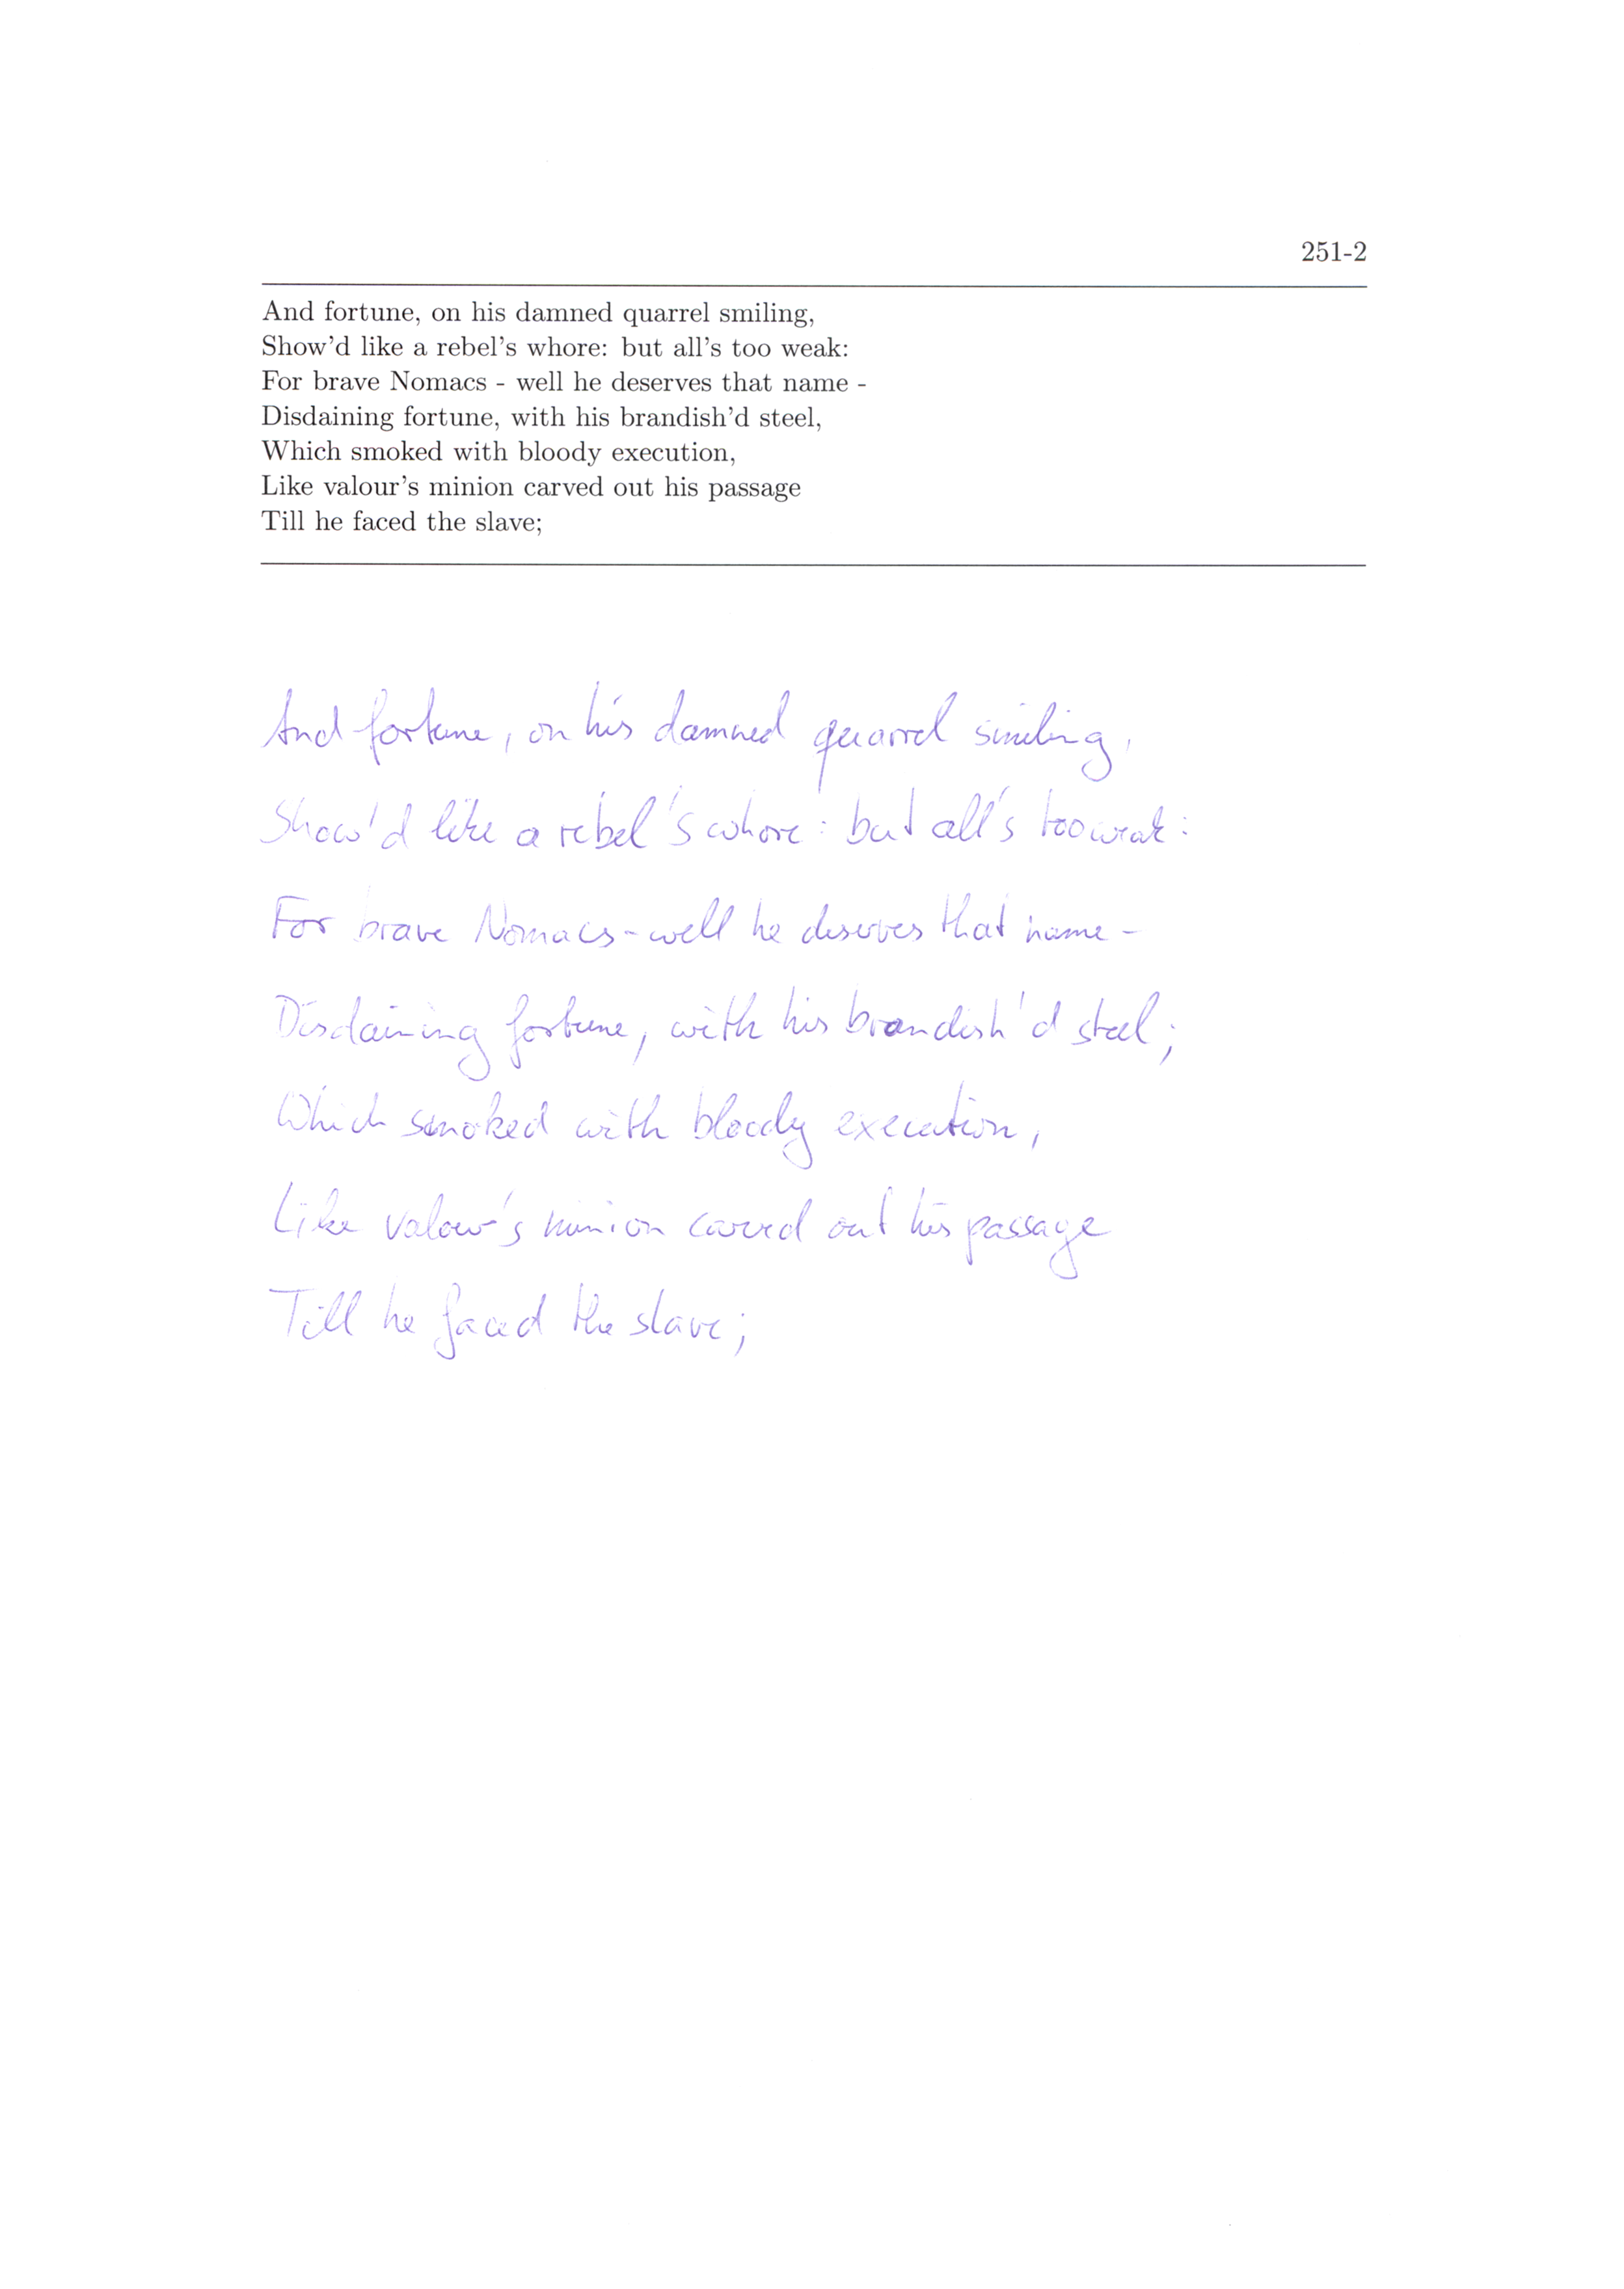 251-2
And fortune, on his damned quarrel smiling,
Show'd like a rebel's whore: but all's too weak:
For brave Nomacs - well he deserves that name -
Disdaining fortune, with his brandish'd steel,
Which smoked with bloody execution,
Like valour's minion carved out his passage
Till he faced the slave;
And fortune, on his damned quarrel smiling,
Show'd like a rebel's whore: but all's too weak:
For brave Nomacs - well he deserves that name -
Disdaining fortune, with his brandish'd steel;
Which smoked with bloody execution,
Like valour's minion carved out his passage
Till he faced the slave;